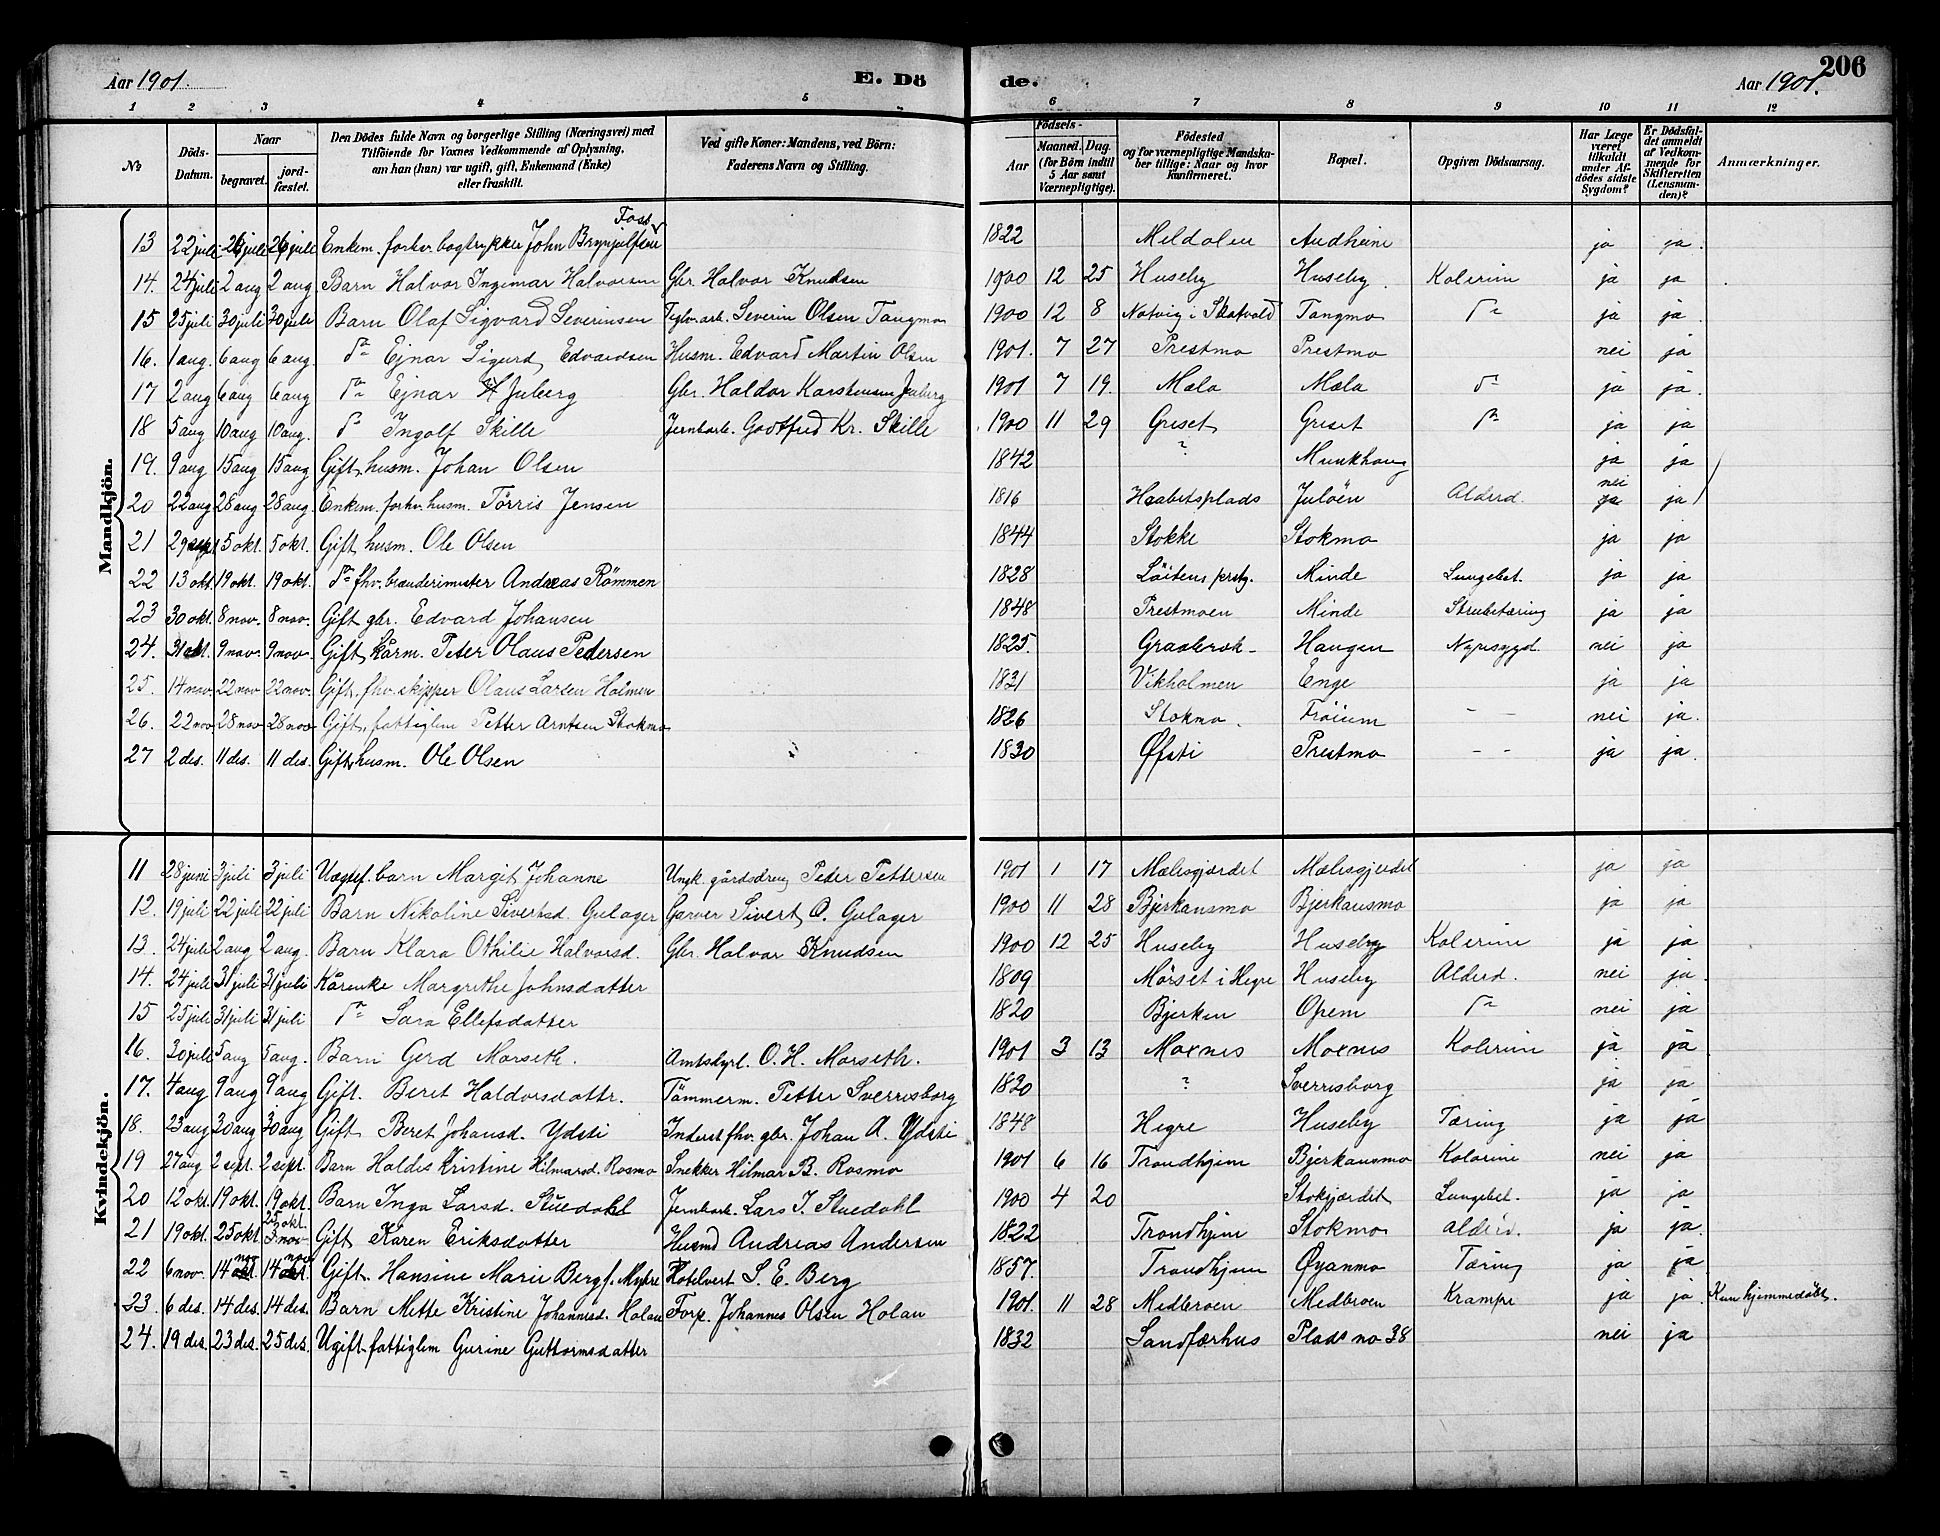 206
Aar 1901. E. Dö de. Aar 1901.
1 2 3 4 5 6 7 8 9 10 11 12
No Döds-Datum. Naar begravet. jordfæstet. Den Dödes fulde Navn og borgerlige Stilling (Næringsvei) med Tilföiende for Voxnes Vedkommende af Oplysning, om han (hun) var ugift, gift, Enkemand (Enke) eller fraskilt. Ved gifte Koner: Mandens, ved Börn: Faderens Navn og Stilling. Födsels- Aar Maaned. Dag. (for Börn indtil 5 Aar samt Værnepligtige). Födested og for værnepligtige Mandskaber tillige: Naar og hvor konfirmeret. Bopæl. Opgiven Dödsaarsag. Har Læge været tilkaldt under Afdödes sidste Sygdom? Er Dödsfaldet anmeldt af Vedkommende for Skifteretten (Lensmanden)? Anmærkninger.
Mandkjön.
13 22 juli 26 juli 26 juli Enkem. forhv. bogtrykker John Brynjulfsen Foss 1822 Meldalen Audheim ja ja.
14. 24 juli 2 aug 2 aug. Barn Halvor Ingemar Halvorsen Gbr. Halvor Knudsen 1900 12 25 Huseby Huseby Kolerine ja ja
15 25 juli 30 juli 30 juli Barn Olaf Sigvard Severinsen Teglv.arb. Severin Olsen Tangmo 1900 12 8 Natvig i Skatvold Tangmo do ja ja.
16. 1 aug. 6 aug 6 aug. do Ejnar Sigurd Edvardsen Husm. Edvard Martin Olsen 1901. 7 27 Prestmo Prestmo nei ja
17 2 aug 6 aug 6 aug do Ejnar H Juberg Gbr. Haldor Karstensen Juberg 1901 7 19. Mæla Mæla do ja ja.
18 5 aug 10 aug 10 aug. do Ingolf Skille Jernbarb. Godtfred Kr. Skille 1900 11 29 Griset Griset do ja ja
19. 9 aug 15 aug 15 aug Gift husm. Johan Olsen 1842 ? Munkhaug ja ja
20 22 aug 28 aug 28 aug. Enkem. forhv. husm. Törris Jensen 1816 Haabetsplads Julöen Alderd. nei ja ja
21 29 sept 5 okt. 5 okt. Gift husm. Ole Olsen 1844 Stokke Stokmo ja ja
22 13 okt 19 okt. 19 okt. do fhv. brænderimester Andreas Römmen 1828 Löitens prstg. Minde Lungebet. ja ja
23 30 okt. 8 nov. 8 nov. Gift gbr. Edvard Johansen 1848 Prestmoen Minde Strubetæring ja ja
24. 31 okt. 9 nov. 9 nov. Gift kårm. Peter Olaus Pedersen 1825. Graabrek- Haugen Nyresygd. nei ja
25. 14 nov 22 nov 22 nov. Gift. fhv. skipper Olaus Larsen Holmen 1831 Vikholmen Enge ja ja
26. 22 nov 28 nov 28 nov Gift, fattiglem Petter Arntsen Stokmo 1826 Stokmo. Fröium - - nei ja.
27 2 des. 11 des. 11 des. Gift husm. Ole Olsen 1830 Øfsti Prestmo - - ja ja.
Kvindekjön.
11 28 juni 3 juli 3 juli Uægtef. barn Margit Johanne Ungk. gårdsdreng Peder Pettersen 1901 1 17 Mælesgjærdet Mælesgjerdet ja ja
12. 19 juli 22 juli 22 juli Barn Nikoline Sivertsd. Gulager Garver Sivert O. Gulager 1900 11 28 Bjerkansmo Bjerkansmo ja ja
13. 24 juli 2 aug 2 aug. Barn Klara Othilie Halvorsd. Gbr. Halvar Knudsen 1900 12 25 Huseby Huseby Kolerine ja ja
14. 24 juli 31 juli 31 juli Kårenke Margrethe Johnsdatter 1809 Mörset i Hegre Huseby Alderd. nei ja.
15 25 juli 31 juli 31 juli do Sara Ellefsdatter 1820 Bjerken Opem do nei ja
16. 30 juli 5 aug 5 aug. Barn Gerd Morseth. Amtskyrl. O. H. Morseth. 1901 3 13 Moxnes Moxnes Kolerine ja ja
17. 4 aug 9 aug 9 aug Gift. Beret Haldorsdattr. Tömmerm. Petter Sverresborg 1820 ? Sverresborg ja ja
18. 23 aug 30 aug 30 aug Gift Beret Johansd. Ydsti Inderst fhv. gbr. Johan A. Ydsti 1848 Hegre Huseby Tæring ja ja
19 27 aug 2 sept. 2 sept. Barn Haldis Kristine Hilmarsd. Rosmo Snekker Hilmar B. Rosmo 1901 6 16 Trondhjem Bjerkansmo Kolerine nei ja
20 12 okt 19 okt. 19 okt. Barn Inga Larsd. Stuedahl Jernbarb. Lars J. Stuedahl 1900 4 20 Stokgjærdet Lungebet. ja ja
21 19 okt. 25 okt 25 okt. 3 nov Gift Karen Eriksdatter Husmd Andreas Andersen 1822 Trondhjem Stokmo Alderd. ja ja
22 6 nov. 14 okt nov 14 okt. nov Gift. Hansine Marie Berg f. Myhre Hotelvert S. E. Berg 1857. Trondhjem Øyanmo Tæring ja ja
23. 6 des. 14 des. 14 des. Barn Mette Kristine Johannesd. Holan Forp. Johannes Olsen Holan 1901. 11 28 Medbroen Medbroen Krampe ja ja. Kun hjemmedöbt.
24. 19 des. 23 des. 25 des. Ugift fattiglem Gurine Guttormsdatter 1832 Sandfærhus Plads no 38 nei ja